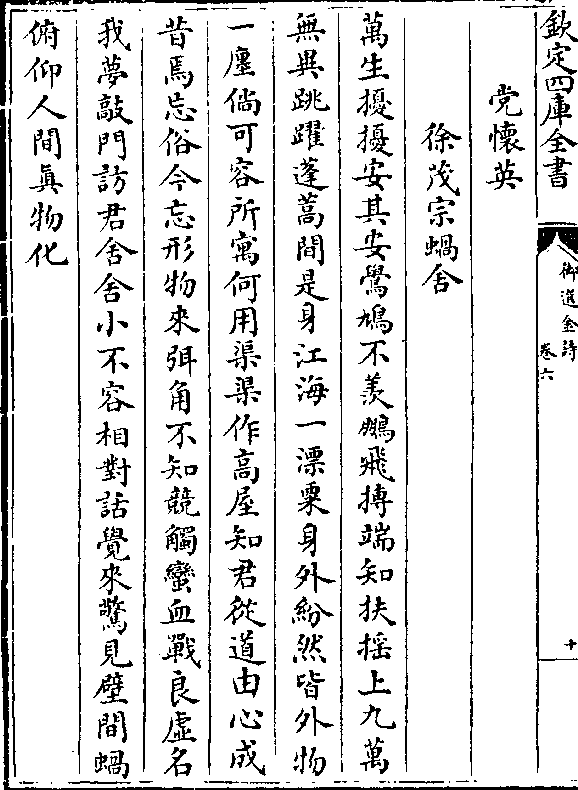 欽定四庫全書
御選金詩
卷六
十
党懷英
徐茂宗蝸舍
萬生擾擾安其安鷽鳩不羨鵬飛摶端知扶摇上九萬
無異跳躍蓬蒿間是身江海一漂粟身外紛然皆外物
一廛倘可容所寓何用渠渠作高屋知君從道由心成
昔焉忘俗今忘形物來弭角不知競觸蠻血戰良虛名
我夢敲門訪君舍舍小不容相對話覺來驚見壁間蝸
俯仰人間真物化